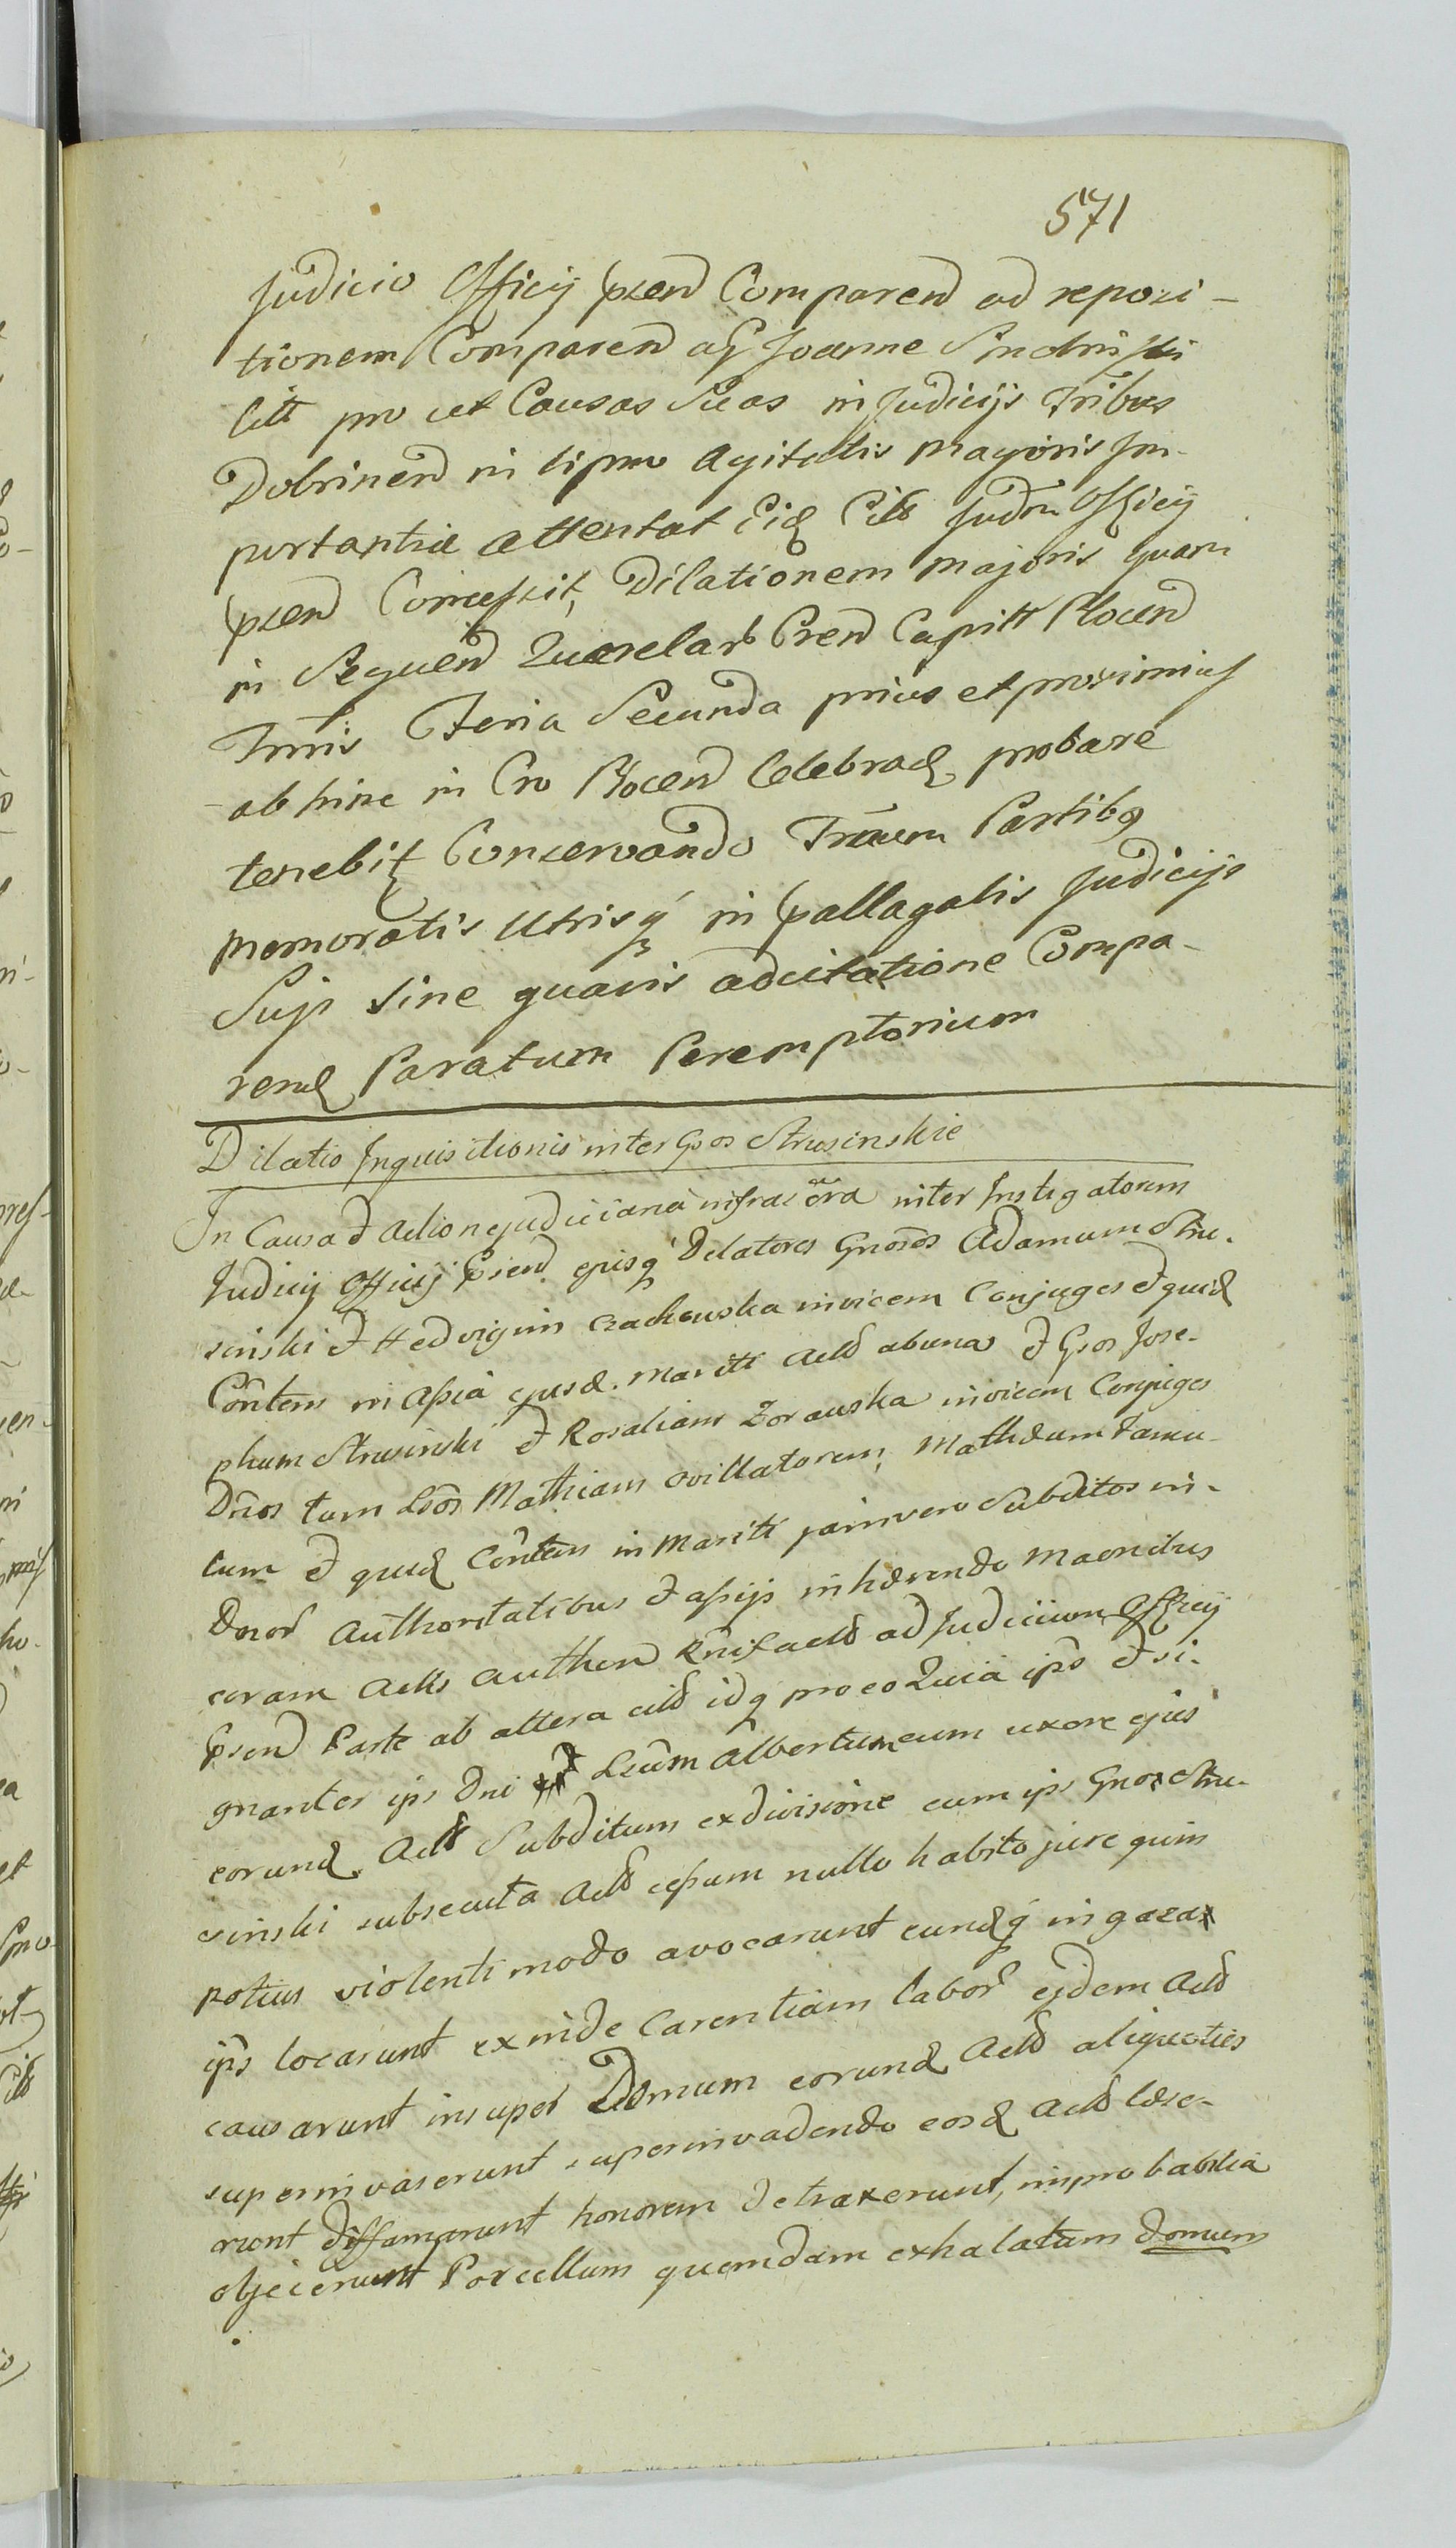 571
Judicio Officij pṡend Comparend ad reposi-
tionem Comparend a Joanne
Citt pro ut Causas Suas in Judicijs Tribus
Dobrinend in tipmo Agitatis Majoris Jm-
portantiæ attentat Eid Citt Judm Officij
pṡend Concessit, Dilationem majoris quam
in Seguend Querelarb Cṡend Capitt Plocend
Trmis Feria Secunda prius et proximius
abhinc in Cro Plocend Celebrad probare
tenebit Conservando Trmum Partibq
memoratis Utrisq in pallagatis Judicijs
Suis sine quavis adcitatione Compa-
rend Paratum Peremptorium
Dilatio Inquisitionis inter Gsos Strusinskie
In Causa & Actione judiciaria infra sctra inter Instigatorem
Judicij Officij Psend ejusq Delatores Gnosos Adamum Stru-
sinski & Hedvigim Czachowska invicem Conjuges & quid
Contem in assia ejusd. Mariti Actt ab una & Gsos Jose-
phum Strusinski & Rosaliam Zorawska invicem Conjuges
Dnos tum Lsos Mathiam ovillatorem, Mathæum famu-
lum & quid Contem in Mariti jam vero Subditos in-
Dnor Authoritatibus & assijs inhærendo Maonibus
coram Actis authen Rnif actt ad Judicium Officij
Psend Parte ab altera citt idq pro eo Quia ips & si-
gnanter ips Dni & Lsum Albertum cum uxore ejus
eorund Actt Subditum ex divisione cum ips Gnos Stru-
sinski subsecuta Actt cessum nullo habito jure quin
potius violenti modo avocarunt eundq in gaza
ips locarunt exinde Carentiam labor ejdem Actt
causarunt insuper Domum eorund Actt aliquoties
superinvaserunt superinvadendo eosd Actt læse-
runt diffamarunt honorem detraxerunt, improbabilia
objecerunt Porcellum quemdam exhalatum domum